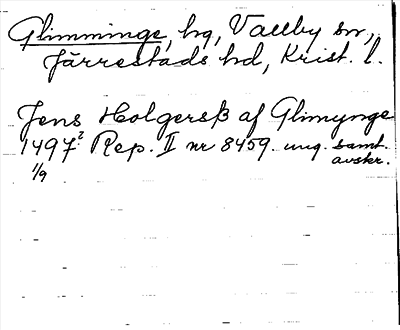 Glimminge, hg, Vallby sn,
Järrestads hd, Krist. l.
Jens Holgersß af Glimynge
1497? Rep. II nr 8459. ung. samt.
1/9 avskr.